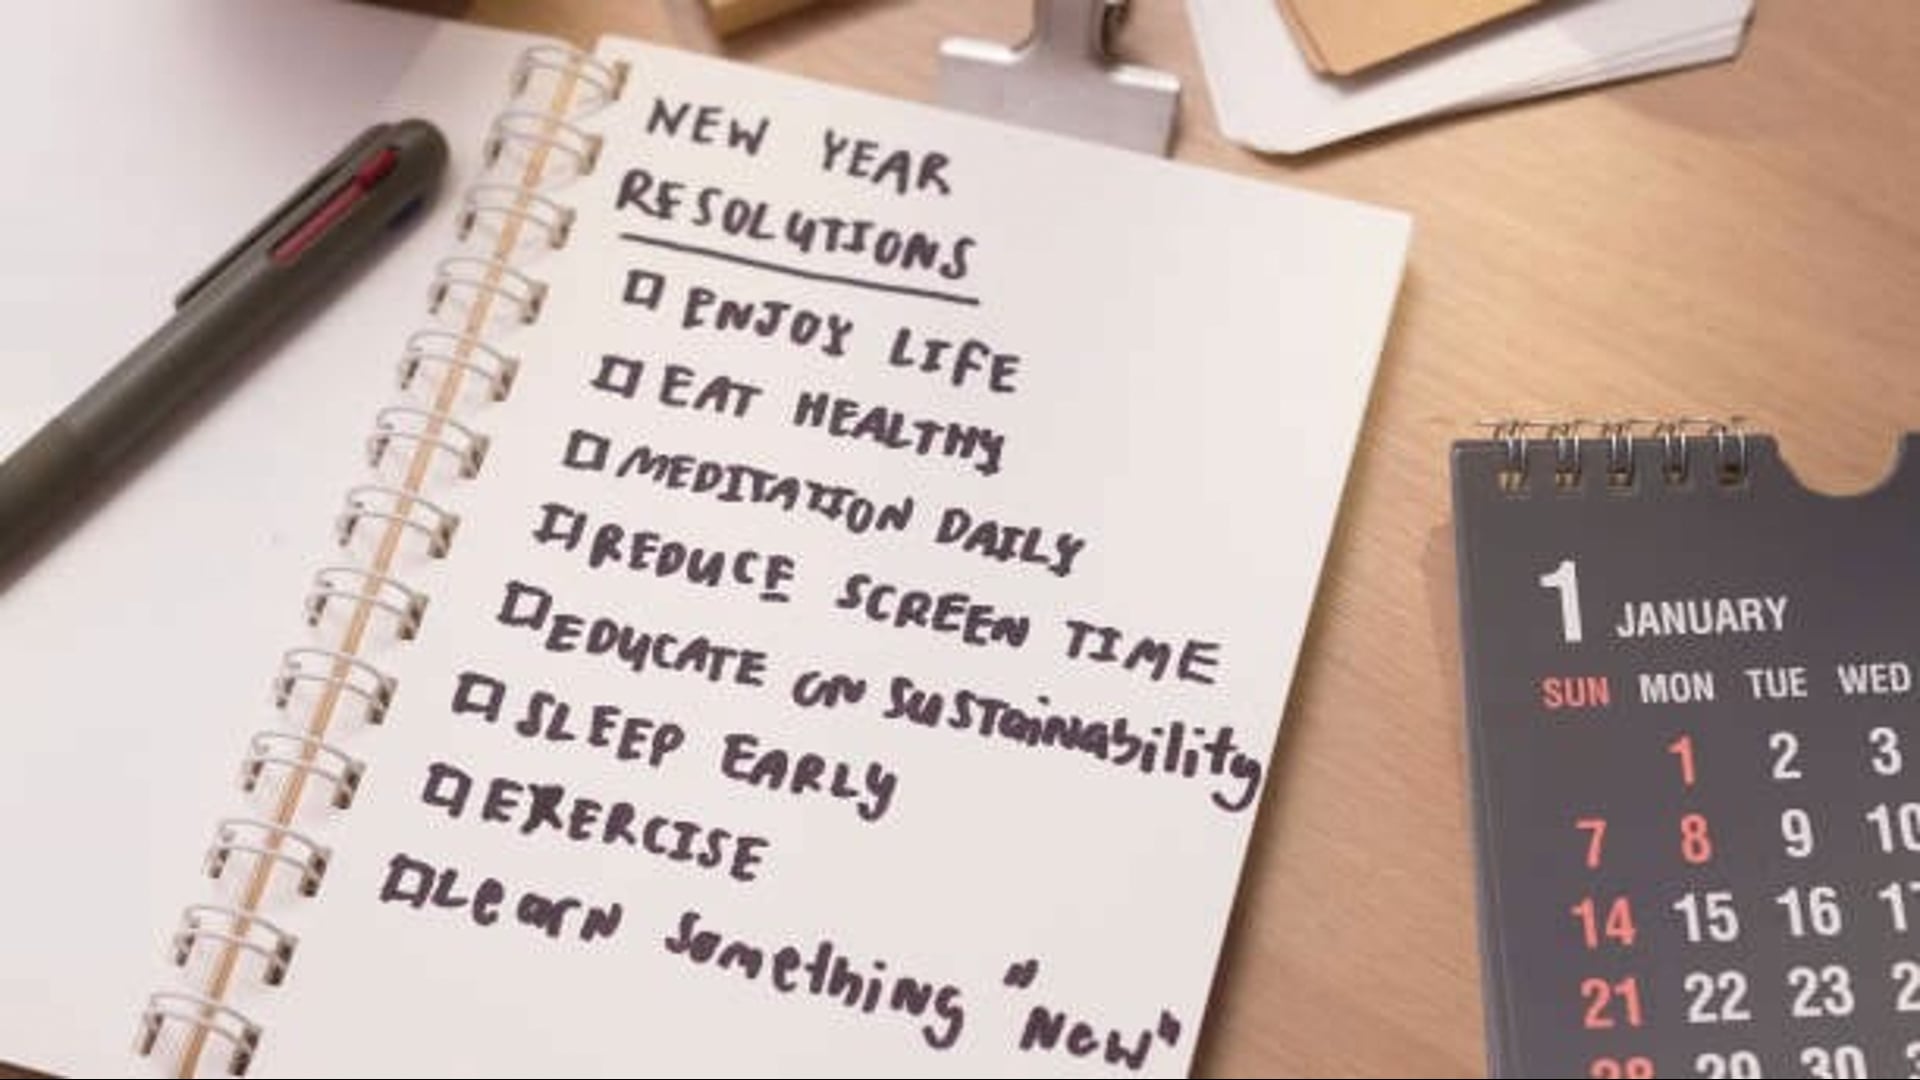 NEW YEAR
RESOLUTIONS
ENJOY LIFE
EAT HEALTHY
MEDITATION DAILY
REDUCE SCREEN TIME
EDUCATE ON SUSTainability
SLEEP EARLY
EXERCISE
Learn something "New"
1 JANUARY
SUN MON TUE WED
1 2 3
7 8 9 10
14 15 16
21 22 23
28 29 30